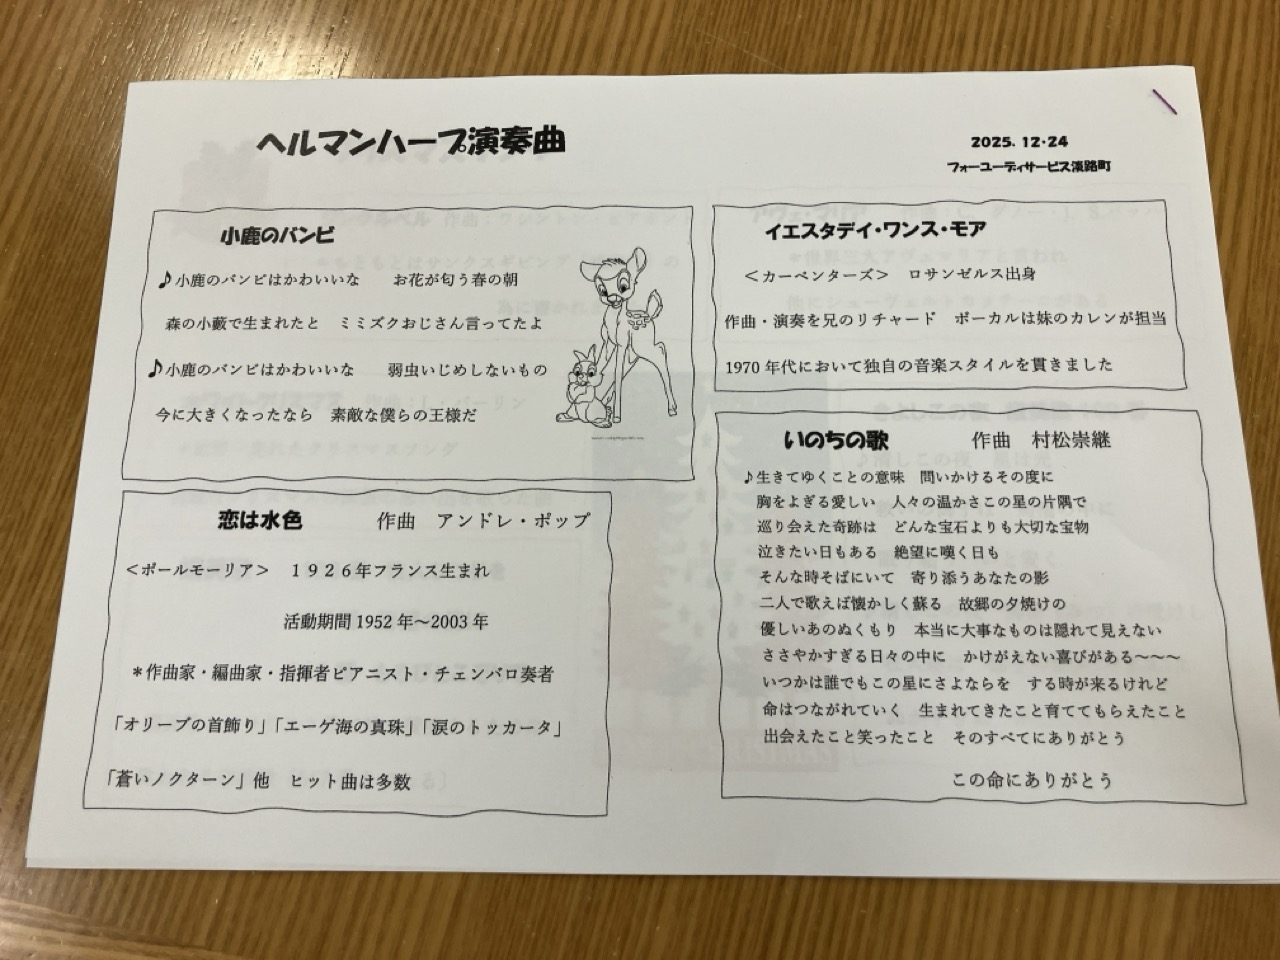 ヘルマンハープ演奏曲
2025. 12・24
フォーユーディサービス淡路町
小鹿のバンビ
♪小鹿のバンビはかわいいな　お花が匂う春の朝
森の小藪で生まれたと　ミミズクおじさん言ってたよ
♪小鹿のバンビはかわいいな　弱虫いじめしないもの
今に大きくなったなら　素敵な僕らの王様だ
恋は水色　作曲　アンドレ・ポップ
＜ポールモーリア＞　１９２６年フランス生まれ
活動期間 1952 年～2003 年
＊作曲家・編曲家・指揮者ピアニスト・チェンバロ奏者
「オリーブの首飾り」「エーゲ海の真珠」「涙のトッカータ」
「蒼いノクターン」他　ヒット曲は多数
イエスタデイ・ワンス・モア
＜カーペンターズ＞　ロサンゼルス出身
作曲・演奏を兄のリチャード　ボーカルは妹のカレンが担当
1970 年代において独自の音楽スタイルを貫きました
いのちの歌　作曲　村松崇継
♪生きてゆくことの意味　問いかけるその度に
胸をよぎる愛しい　人々の温かさこの星の片隅で
巡り会えた奇跡は　どんな宝石よりも大切な宝物
泣きたい日もある　絶望に嘆く日も
そんな時そばにいて　寄り添うあなたの影
二人で歌えば懐かしく蘇る　故郷の夕焼けの
優しいあのぬくもり　本当に大事なものは隠れて見えない
ささやかすぎる日々の中に　かけがえない喜びがある～～～
いつかは誰でもこの星にさよならを　する時が来るけれど
命はつながれていく　生まれてきたこと育ててもらえたこと
出会えたこと笑ったこと　そのすべてにありがとう
この命にありがとう